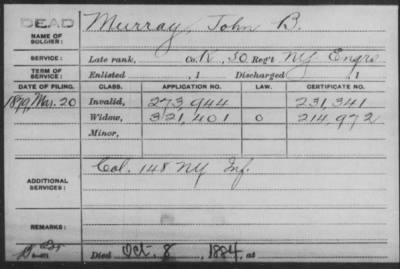 DEAD
NAME OF SOLDIER: Murray, John B.
SERVICE: Late rank, Co. K, 50 Reg't NY Engrs
TERM OF SERVICE: Enlisted , 1 Discharged , 1
DATE OF FILING. CLASS. APPLICATION NO. LAW. CERTIFICATE NO.
1879, Mar. 20 Invalid, 273,944 231,341
Widow, 321,401 0 214,972
Minor,
ADDITIONAL SERVICES: Col. 148 NY Inf.
REMARKS:
Died Oct. 8, 1884, at